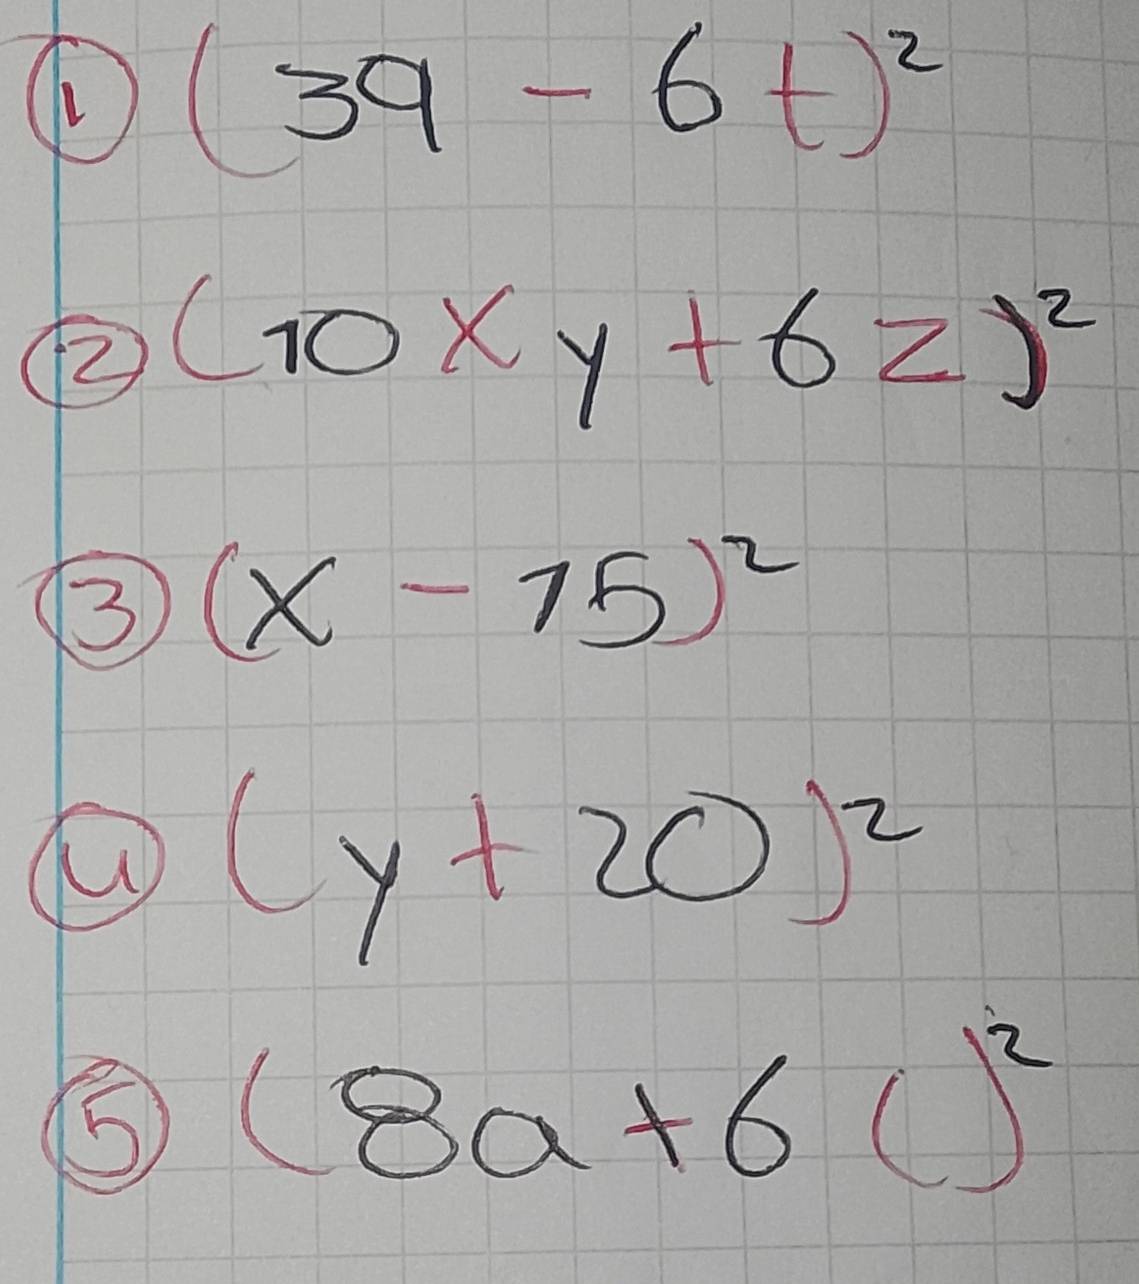 ① (39 - 6t)²
② (10xy + 6z)²
③ (x - 15)²
④ (y + 20)²
⑤ (8a + 6c)²